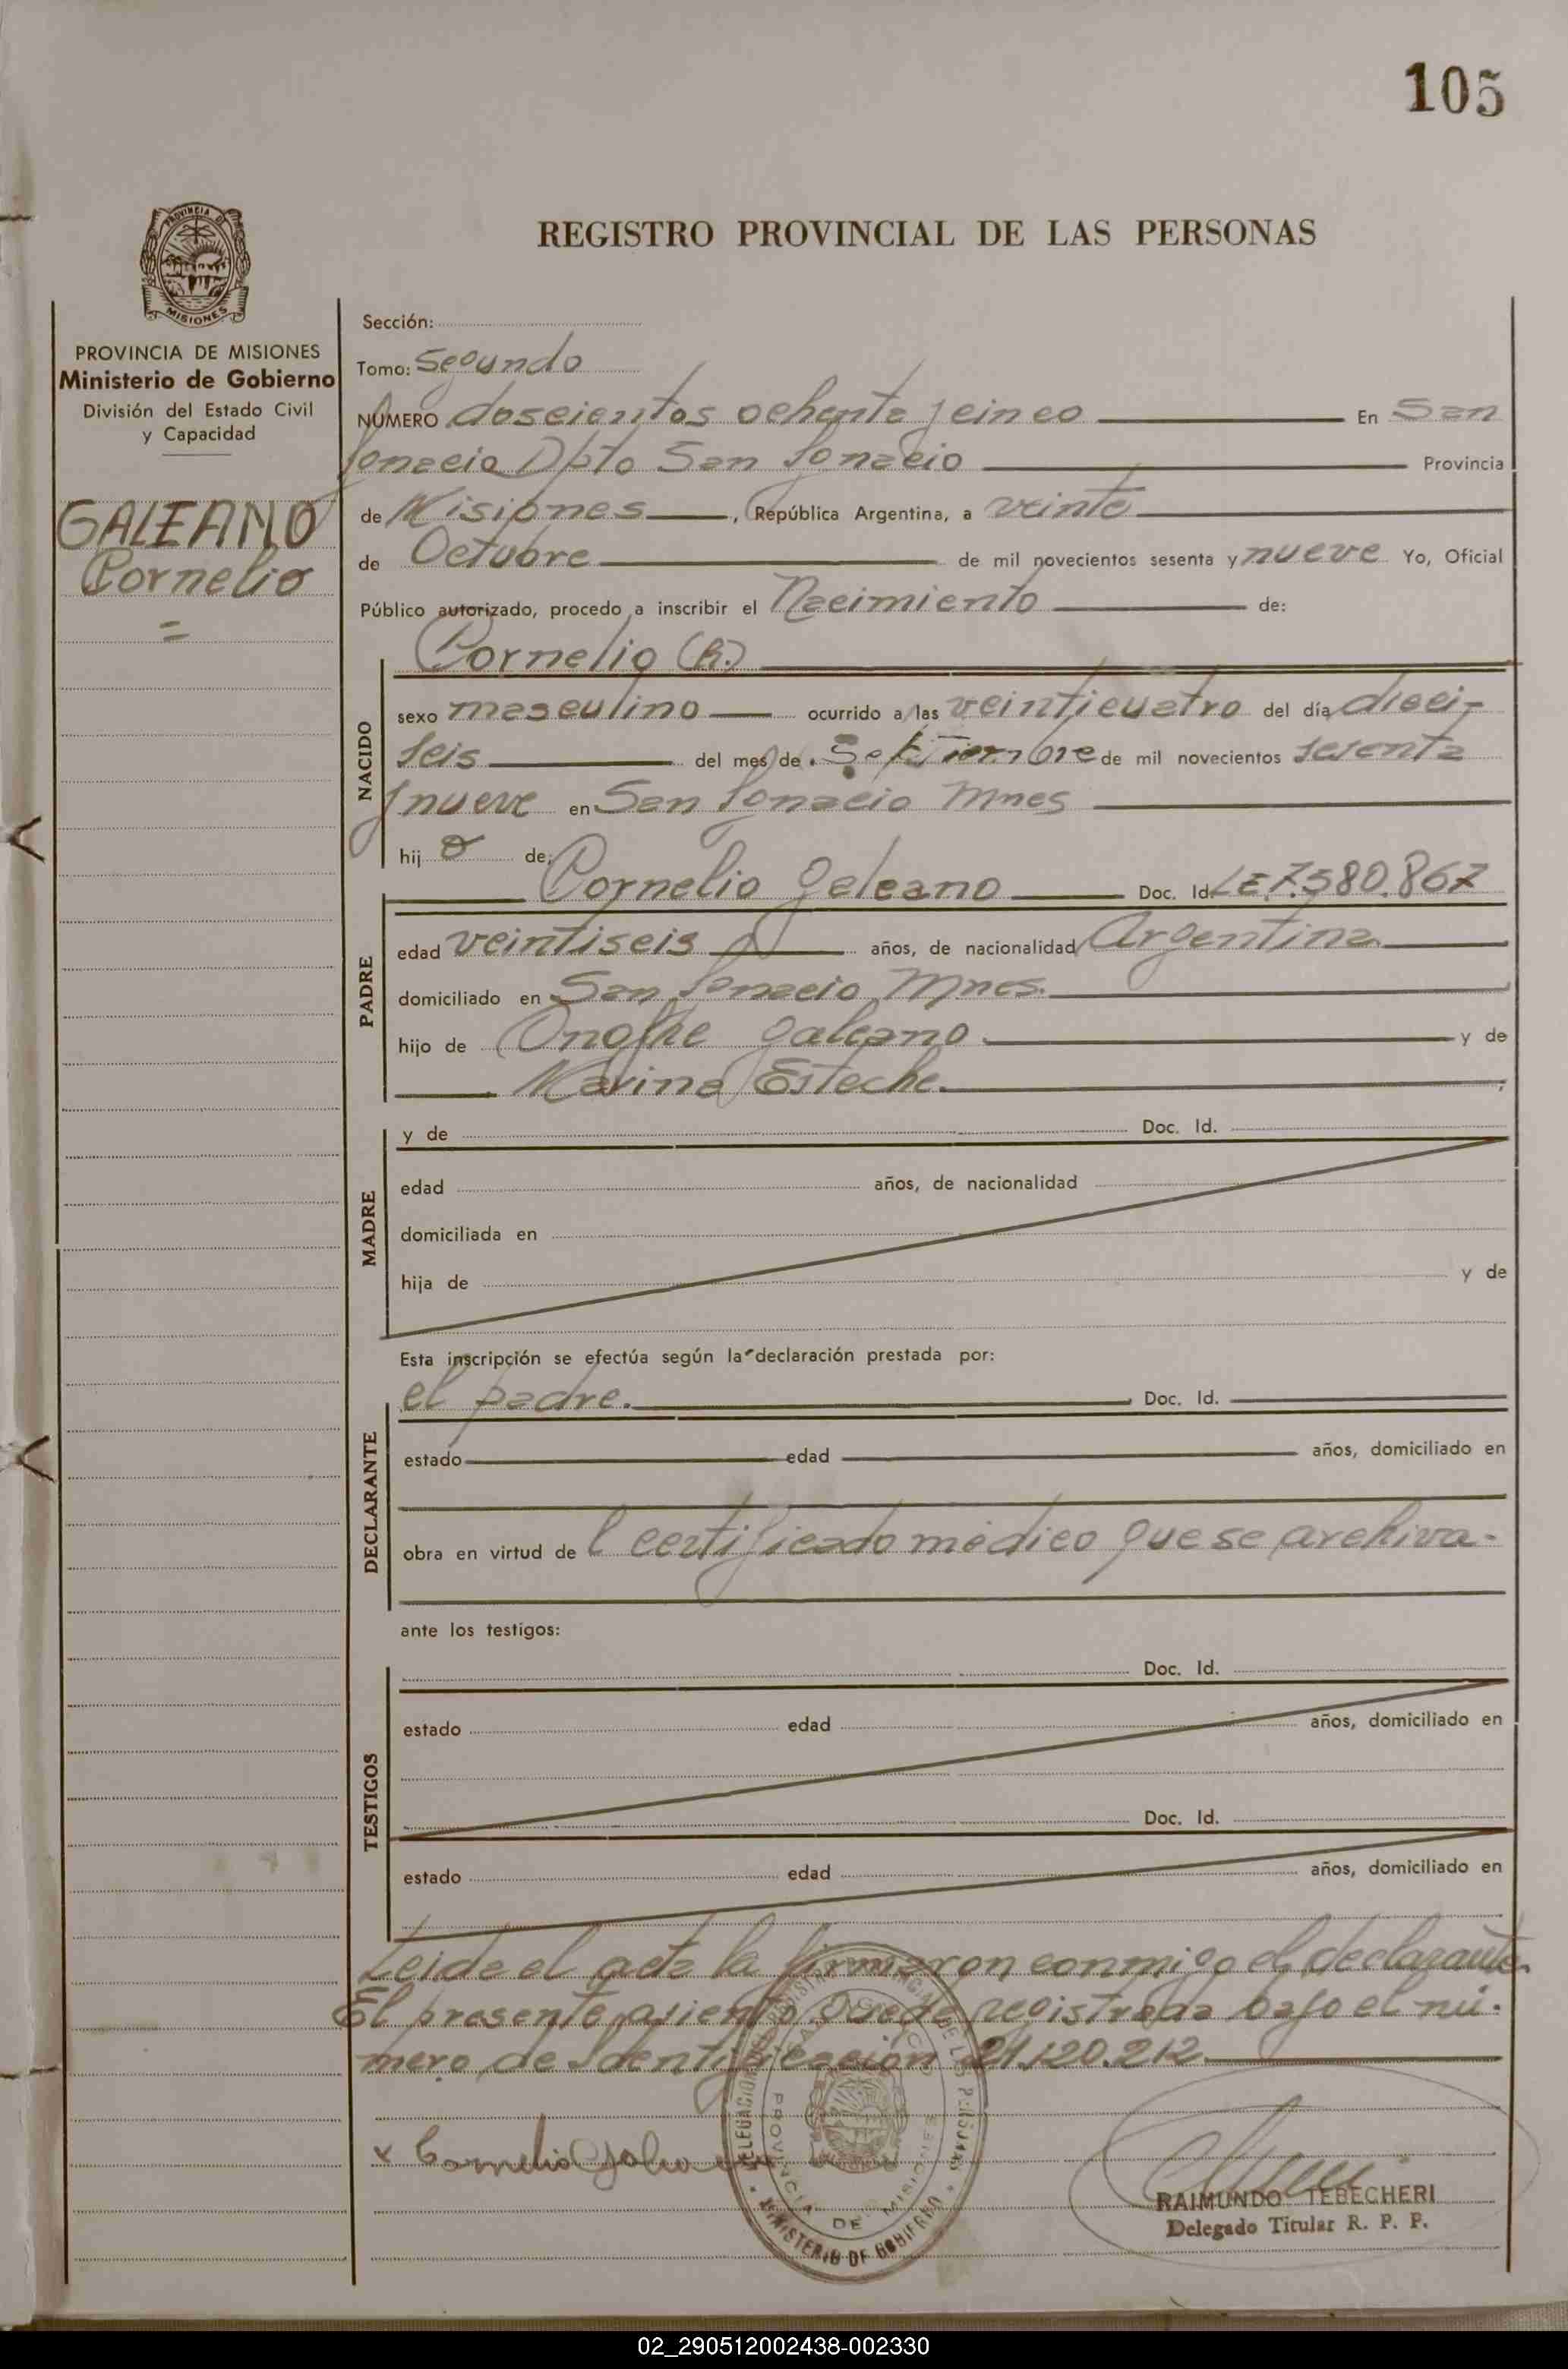 105
PROVINCIA DE
MISIONES
REGISTRO PROVINCIAL DE LAS PERSONAS
PROVINCIA DE MISIONES
Ministerio de Gobierno
División del Estado Civil
y Capacidad
GALEANO
Cornelio
=
Sección:
Tomo: Segundo
NUMERO doscientos ochenta y cinco En San
Ignacio Dpto San Ignacio Provincia
de Misiones, República Argentina, a veinte
de Octubre de mil novecientos sesenta y nueve Yo, Oficial
Público autorizado, procedo a inscribir el Nacimiento de:
Cornelio (h.)
NACIDO
sexo masculino ocurrido a las veinticuatro del día dieci-
seis del mes de Septiembre de mil novecientos sesenta
y nueve en San Ignacio Mnes
hij o de:
Cornelio Galeano Doc. Id. LE 7.580.867
PADRE
edad veintiseis años, de nacionalidad Argentina
domiciliado en San Ignacio Mnes.
hijo de Onofre Galeano y de
Marina Esteche.
MADRE
y de Doc. Id.
edad años, de nacionalidad
domiciliada en
hija de y de
Esta inscripción se efectúa según la declaración prestada por:
el padre. Doc. Id.
DECLARANTE
estado edad años, domiciliado en
obra en virtud de l certificado médico que se archiva.
ante los testigos:
TESTIGOS
Doc. Id.
estado edad años, domiciliado en
Doc. Id.
estado edad años, domiciliado en
Leida el acta la firmaron conmigo el declarante.
El presente asiento queda registrada bajo el nú-
mero de Identificación 21.120.212
x Cornelio Galeano
DE LAS PERSONAS
PROVINCIA DE MISIONES
MINISTERIO DE GOBIERNO
RAIMUNDO TEBECHERI
Delegado Titular R. P. P.
02_290512002438-002330